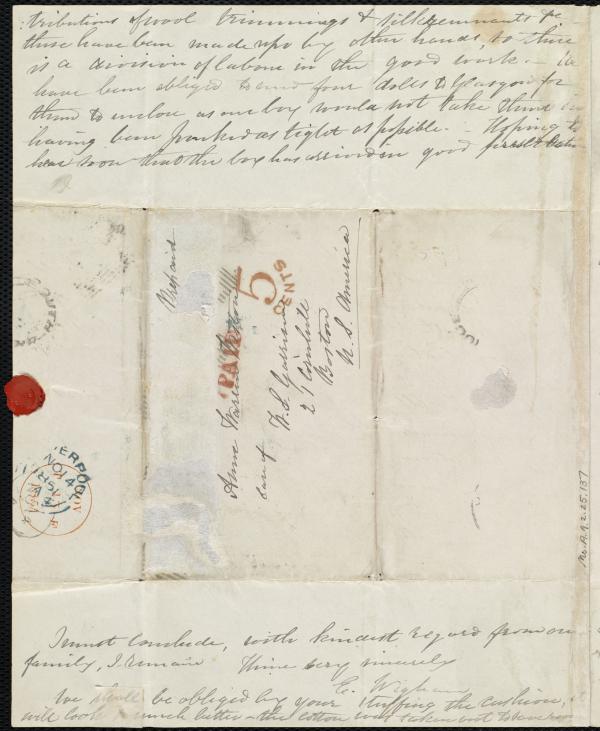 tributions of wool trimmings & silk remnants &c
these have been made up by other hands, so there
is a division of labour in the good work. – We
have been obliged to send four dolls to Glasgow for
them to enclose as our box would not take them in
having been packed as tight as possible. – Hoping to
hear soon that the box has arrived in good
Prepaid
PAID
5
CENTS
Anne Warren Weston
care of W. L. Garrison
21 Cornhill
Boston
U. S. America
Ms. A. 9. 2. 25. 137
I must conclude, with kindest regard from our
family, I remain thine very sincerely
E. Wigham
We shall be obliged by your stuffing the cushion, it
will look much better – the cotton was taken out to save room